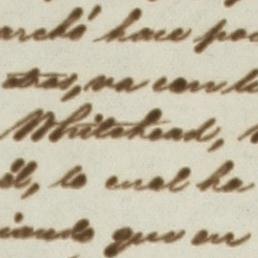 marchó hace po
atras, va con l
Whitehead,
él, lo cual ha
iando que en